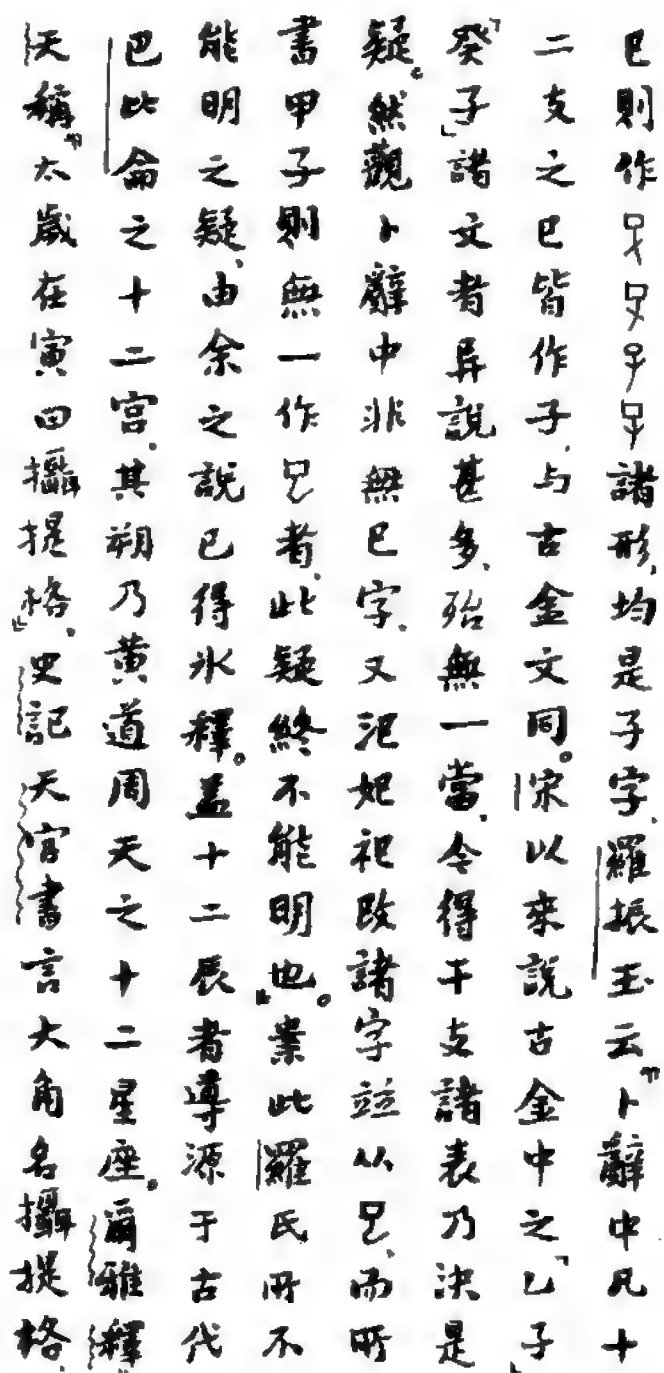 巳則作諸形，均是子字。羅振玉云『卜辭中凡十
二支之巳皆作子，与古金文同。宋以來說古金中之「乙子」
「癸子」諸文者异說甚多，殆無一當，今得干支諸表乃決是
疑。然觀卜辭中非無巳字，又汜妃祀改諸字並从，而所
書甲子則無一作者，此疑終不能明也。』案此羅氏所不
能明之疑，由余之說已得氷釋。蓋十二辰者導源于古代
巴比侖之十二宫，其朔乃黄道周天之十二星座。爾雅釋
天稱『太歲在寅曰攝提格』，史記天官書言大角名攝提格，